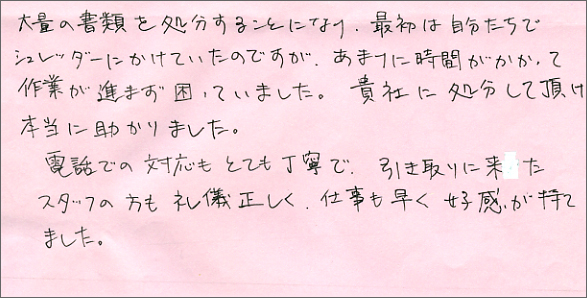 大量の書類を処分することになり、最初は自分たちで
シュレッダーにかけていたのですが、あまりに時間がかかって
作業が進まず困っていました。貴社に処分して頂け
本当に助かりました。
電話での対応もとても丁寧で、引き取りに来た
スタッフの方も礼儀正しく、仕事も早く好感が持て
ました。